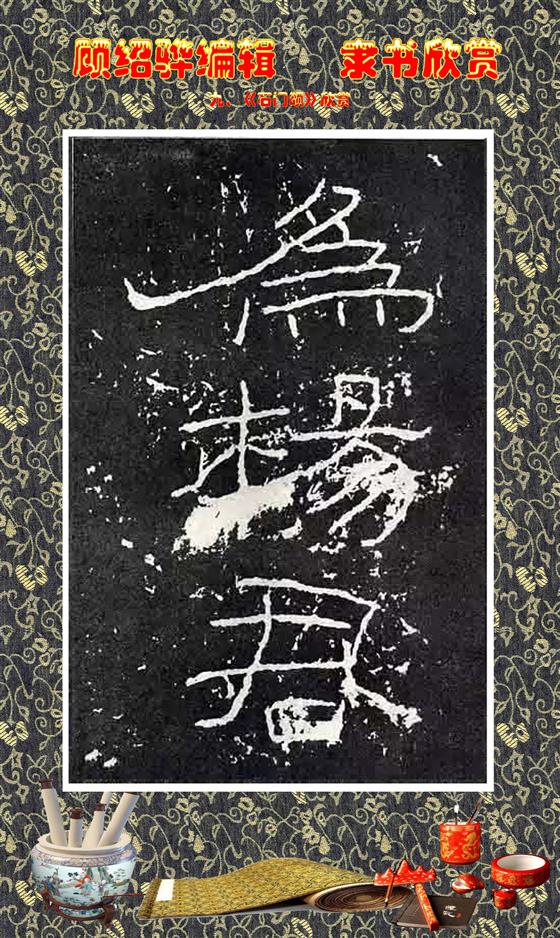 顾绍骅编辑 隶书欣赏
九、《石门颂》欣赏
為
楊
君